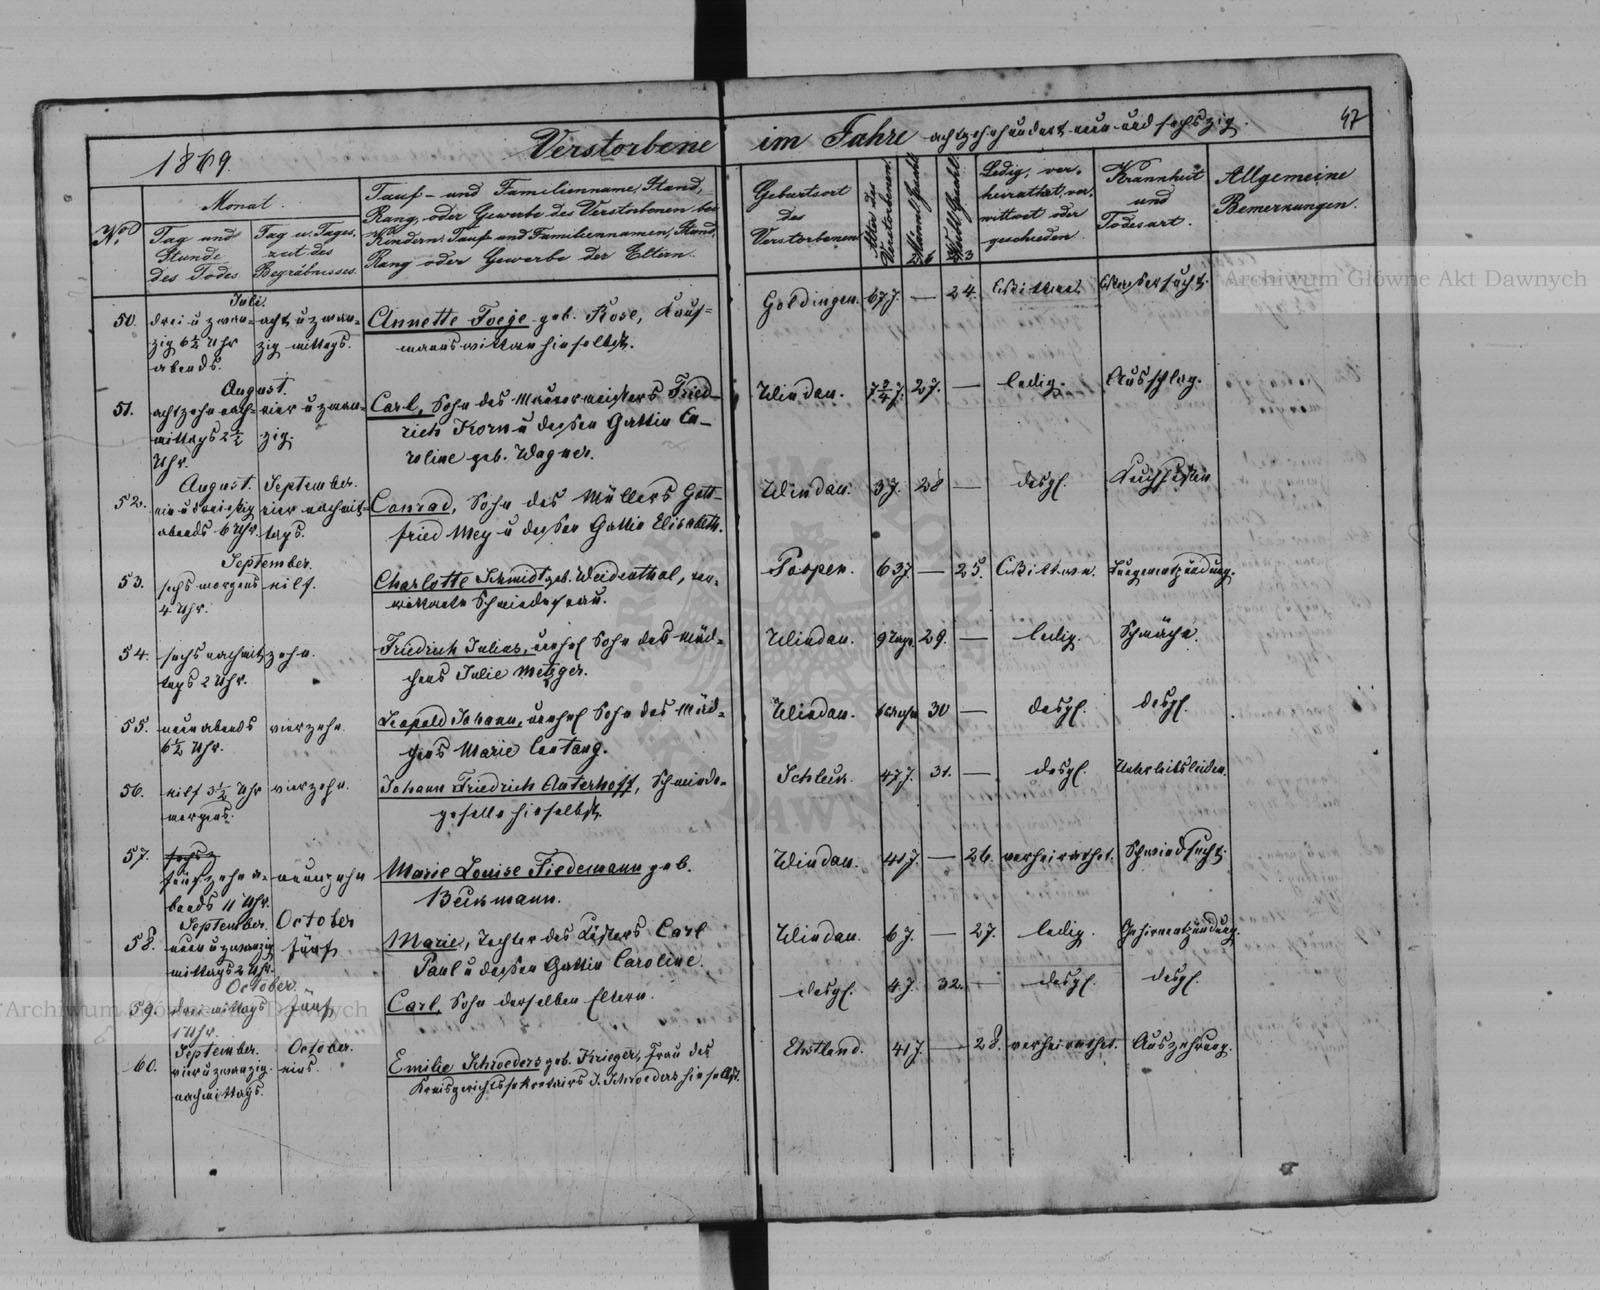 Verstorbene im Jahre achtzehnhundert neun und sechszig.
47
1869.
No.
Monat.
Tag und Stunde des Todes
Tag u. Tages, zeit des Begräbnisses.
Tauf- und Familienname, Stand,
Rang, oder Gewerbe des Verstorbenen bei
Kindern: Tauf- und Familiennamen, Stand,
Rang oder Gewerbe der Eltern.
Geburtsort des Verstorbenen
Alter des Verstorbenen.
Männl. Geschl.
Weibl. Geschl.
Ledig, ver-
heirathet, ver,
wittwet oder
geschieden.
Krankheit und Todesart.
Allgemeine Bemerkungen.
Juli.
50. drei u zwan- acht u zwan- Annette Foege geb. Rose, Kauf- Goldingen. 67 J. — 24. Wittwe. Wassersucht.
zig 6½ Uhr zig mittags. mannswittwe hieselbst.
abends.
August.
51. achtzehn nach- vier u zwan- Carl, Sohn des Maurermeisters Fried- Windau. 7 2/4 J. 27. — ledig. Ausschlag.
mittags 2½ zig. rich Korn u dessen Gattin Ca-
Uhr. roline geb. Wagner.
August. September.
52. ein u dreissig vier nachmit- Conrad, Sohn des Müllers Gott- Windau. 3 J. 28 — desgl.
abends 6 Uhr. tags. fried Mey u dessen Gattin Elisabeth.
September.
53. sechs morgens eilf. Charlotte Schmidt geb. Weidenthal, ver- Paspen. 63 J. — 25. Wittwe. Lungenentzündung.
4 Uhr. wittwete Schmiedesfrau.
54. sechs nachmit- zehn. Friedrich Julius, unehel Sohn des Mäd- Windau. 9 Tage. 29. — ledig. Schwäche.
tags 2 Uhr. chens Julie Metzger.
55. neun abends vierzehn. Leopold Johann, unehel Sohn des Mäd- Windau. 30 — desgl. desgl.
6½ Uhr. chens Marie Lentang.
56. eilf 3½ Uhr vierzehn. Johann Friedrich Anterhoff, Schmiede- Schleck. 47 J. 31. — desgl. Unterleibsleiden.
morgens. geselle hieselbst.
57. sechsz
fünfzehn a- neunzehn Marie Louise Tiedemann geb. Windau. 41 J. — 26. verheirathet. Schwindsucht.
bends 11 Uhr. Beckmann.
September. October
58. neun u zwanzig fünf Marie, Tochter des Küsters Carl Windau. 6 J. — 27. ledig. Gehirnentzündung.
mittags 2 Uhr. Paul u dessen Gattin Caroline.
October.
59. drei mittags fünf Carl, Sohn derselben Eltern. desgl. 4 J. 32. — desgl. desgl.
1 Uhr.
September. October.
60. vier u zwanzig. eins. Emilie Schroeders geb. Krieger, Frau des Ehstland. 41 J. — 28. verheirathet. Auszehrung.
nachmittags. Kreisgerichtssekretairs J. Schroeders hieselbst.
Archiwum Główne Akt Dawnych
Archiwum Główne Akt Dawnych
ARCHIWUM GŁÓWNE AKT DAWNYCH